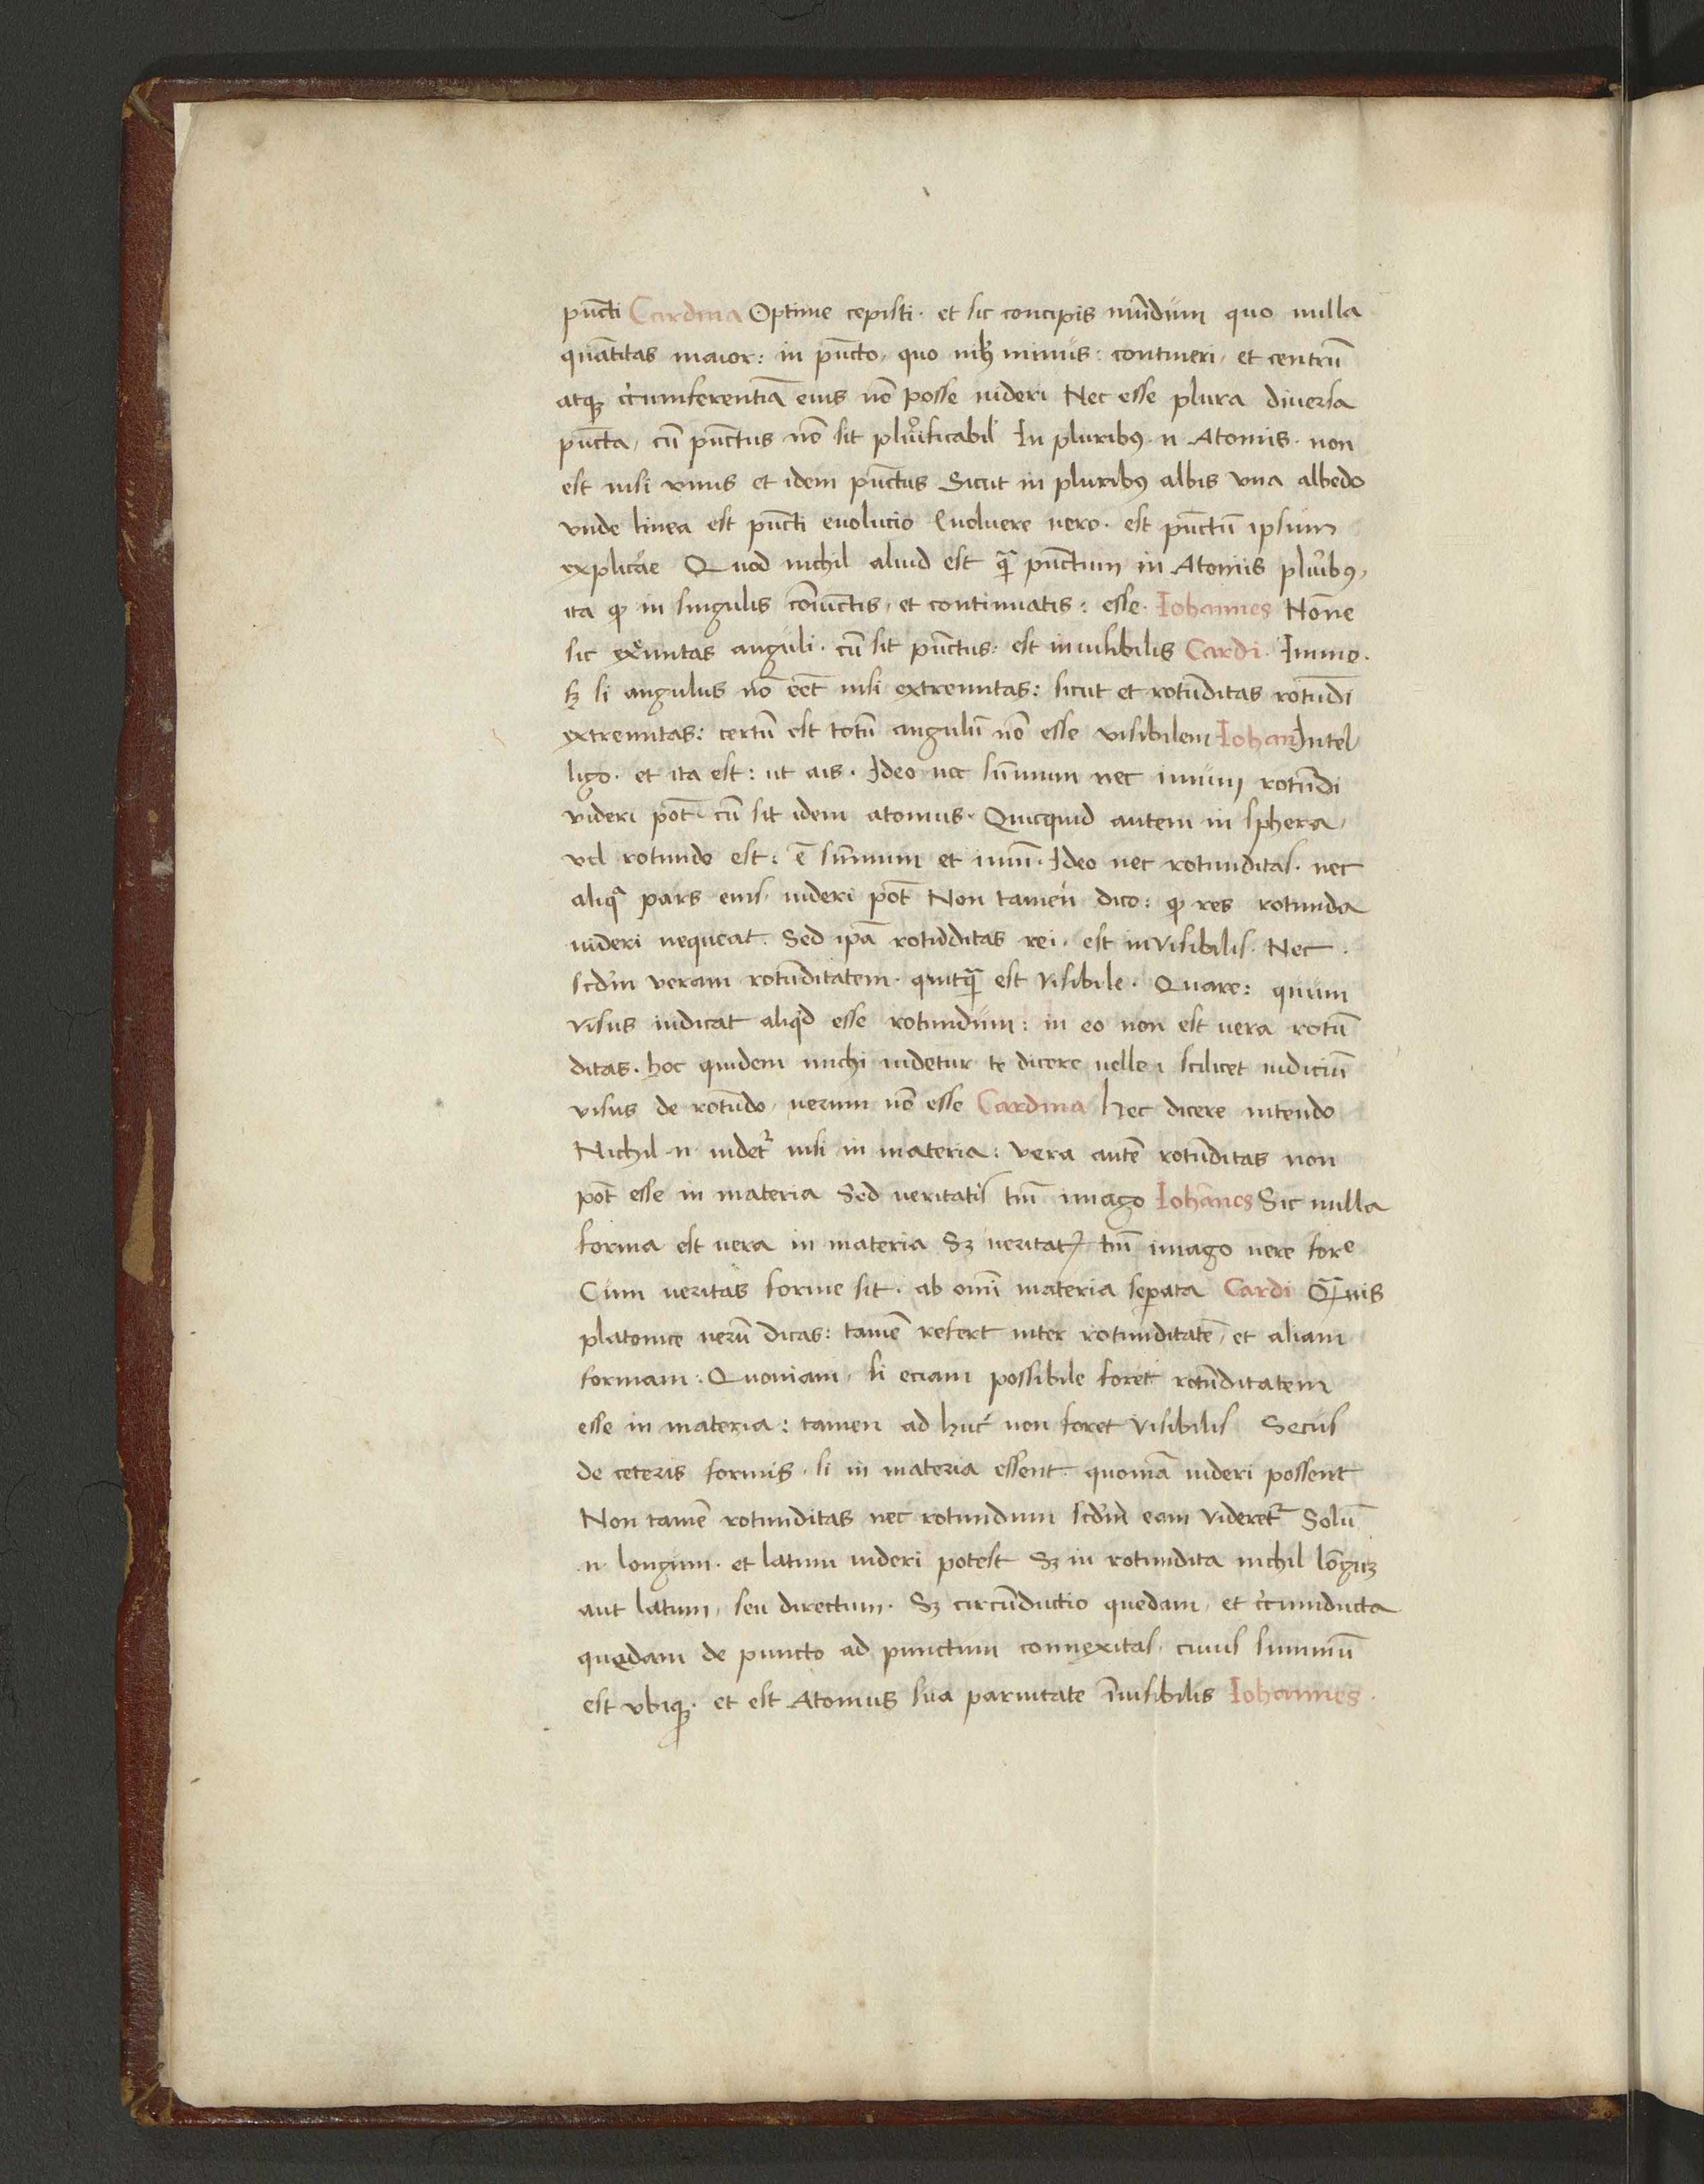 pūcti Cardina Optime cepisti · et sic concipis mūdum quo nulla
quātitas maior : in pūcto, quo nihꝫ minus : contineri, et centrū
atqꝫ circumferentiā eius nō posse uideri Nec esse plura diuersa
pūcta, cū pūctus nō sit plurificabil In pluribꝰ · n · Atomis · non
est nisi vnus et idem pūctus Sicut in pluribꝰ albis vna albedo
vnde linea est pūcti euolucio Euoluere uero · est pūctū ipsum
explicare Quod nichil aliud est qꝫ̄ punctum in Atomis pluribꝰ,
ita ꝙ in singulis coniūctis, et continuatis : esse · Iohannes Nōne
sic extremitas anguli · cū sit pūctus · est inuisibilis Cardi · Immo ·
sꝫ si angulus nō eēt nisi extremitas : sicut et rotūditas rotūdi
extremitas : certū est totū angulū nō esse visibilem Iohan Intel
ligo · et ita est : ut ais · Ideo nec sūmum nec imum rotūdi
videri pōt · cū sit idem atomus · Quicquid autem in sphera,
vel rotundo est : ē sūmum et imū · Ideo nec rotunditas · nec
aliqᵃ pars eius · uideri pōt Non tamen dico : ꝙ res rotunda
uideri nequeat · Sed ip̄a rotūditas rei, est invisibilis · Nec ·
scdm̄ veram rotūditatem · quicqꝫ̄ est visibile · Quare : quum
visus iudicat aliqd esse rotundum : in eo non est uera rotū
ditas · hoc quidem michi uidetur te dicere uelle : scilicet iudiciū
visus de rotūdo, uerum nō esse Cardina Hec dicere intendo
Nichil · n · uidetʳ nisi in materia : vera autē rotūditas non
pōt esse in materia Sed ueritatis tm̄ imago Iohānes Sic nulla
forma est uera in materia Sꝫ ueritatꝭ tm̄ imago uere fore
Cum ueritas forme sit · ab omī materia sep̄ata Cardi Qꝫ̄uis
platonice uerū dicas : tamē refert inter rotunditatē, et aliam
formam : Quoniam, si eciam possibile foret rotūditatem
esse in materia : tamen ad huc non foret visibilis Secus
de ceteris formis · si in materia essent · quoniā uideri possent
Non tamē rotunditas nec rotundum scdm̄ eam videretʳ Solū
n · longum · et latum uideri potest Sꝫ in rotundita nichil lōguꝫ
aut latum, seu directum · Sꝫ circūductio quedam, et circumducta
quedam de puncto ad punctum conuexitas, cuius summū
est vbiqꝫ · et est Atomus sua paruitate īuisibilis Iohannes ·